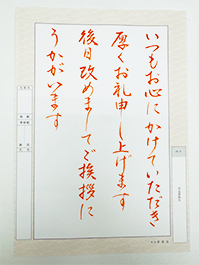 いつもお心にかけていただき
厚くお礼申し上げます
後日改めましてご挨拶に
うかがいます